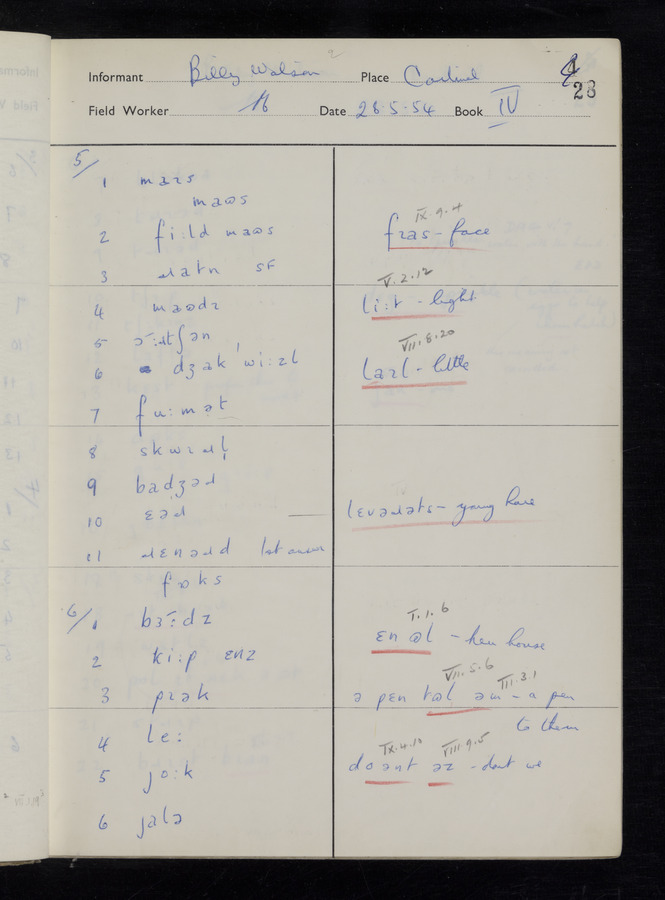 Informant Billy Watson Place
Field Worker Date 28.5.54 Book IV
28
5/
1 maɪs
maʊs
2 fi:ld maʊs
3 ɹatn SF
4
5
6 dʒak wi:zl
7 fu:mət
8 skwɪɹl̩
9 badʒəɹ
10 ɛəɹ
11 ɹɛnəɹd 1st answer
fɒks
6/
1 bɜ:dz
2 ki:p ɛnz
3
4 le:
5 jo:k
6 jalə
IX.9.4
fɪas - face
V.2.12
li:t - light
VII.8.20
laɪl - little
lɛvəɹəts - young hare
I.1.6
ɛn ɵl - hen house
VII.5.6 III.3.1
ə pɛn təl əm - a pen
to them
IX.4.10 VIII.9.5
doənt əz - dont we